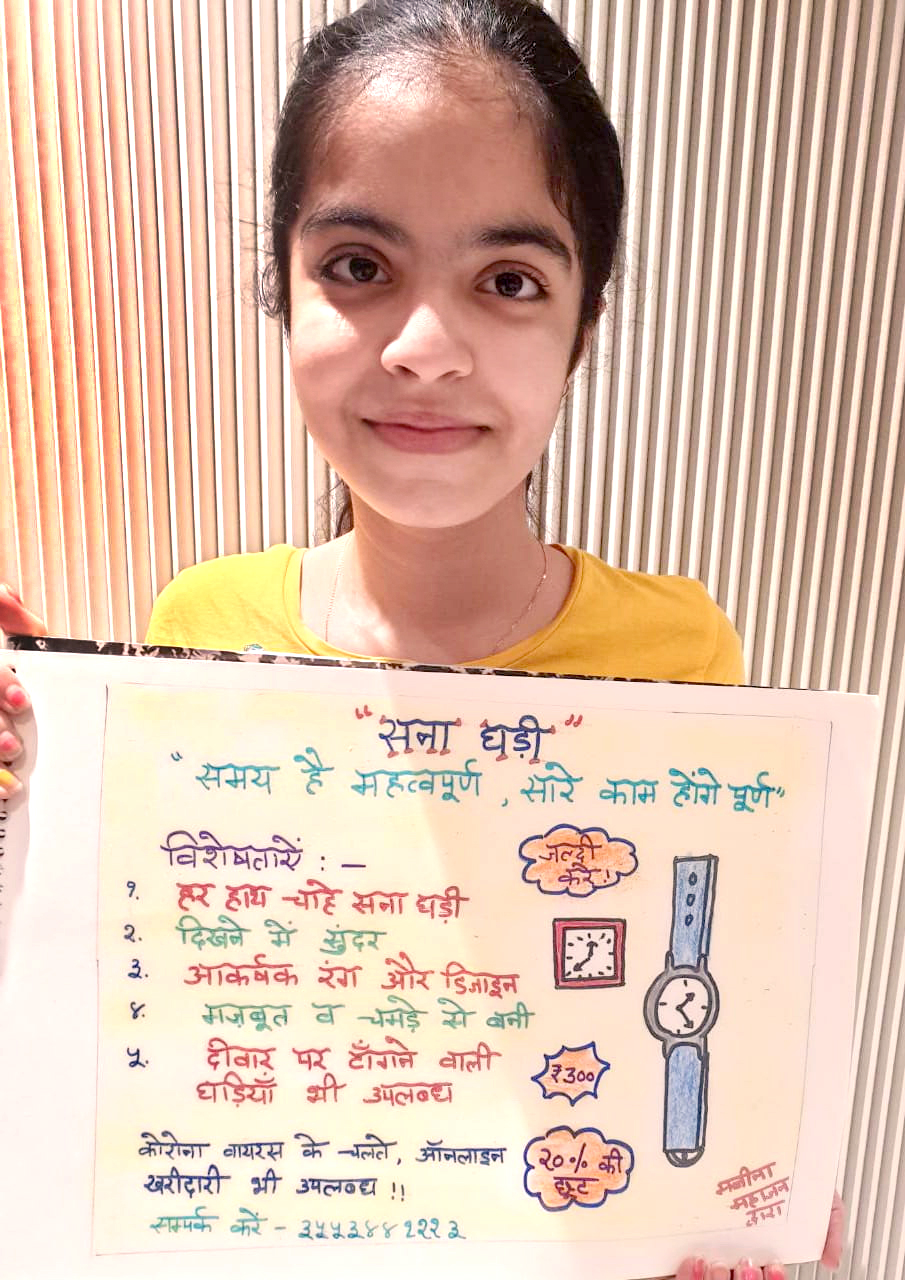 "सना घड़ी"
"समय है महत्वपूर्ण, सारे काम होंगे पूर्ण"
विशेषतायें : –
जल्दी
करें!
१. हर हाथ चाहे सना घड़ी
२. दिखने में सुंदर
३. आकर्षक रंग और डिजाइन
४. मज़बूत व चमड़े से बनी
५. दीवार पर टाँगने वाली
घड़ियाँ भी उपलब्ध
₹300
कोरोना वायरस के चलते, ऑनलाइन
खरीदारी भी उपलब्ध !!
२०% की
छूट
सम्पर्क करें – ३५५३४४१११३
महाजन
द्वारा